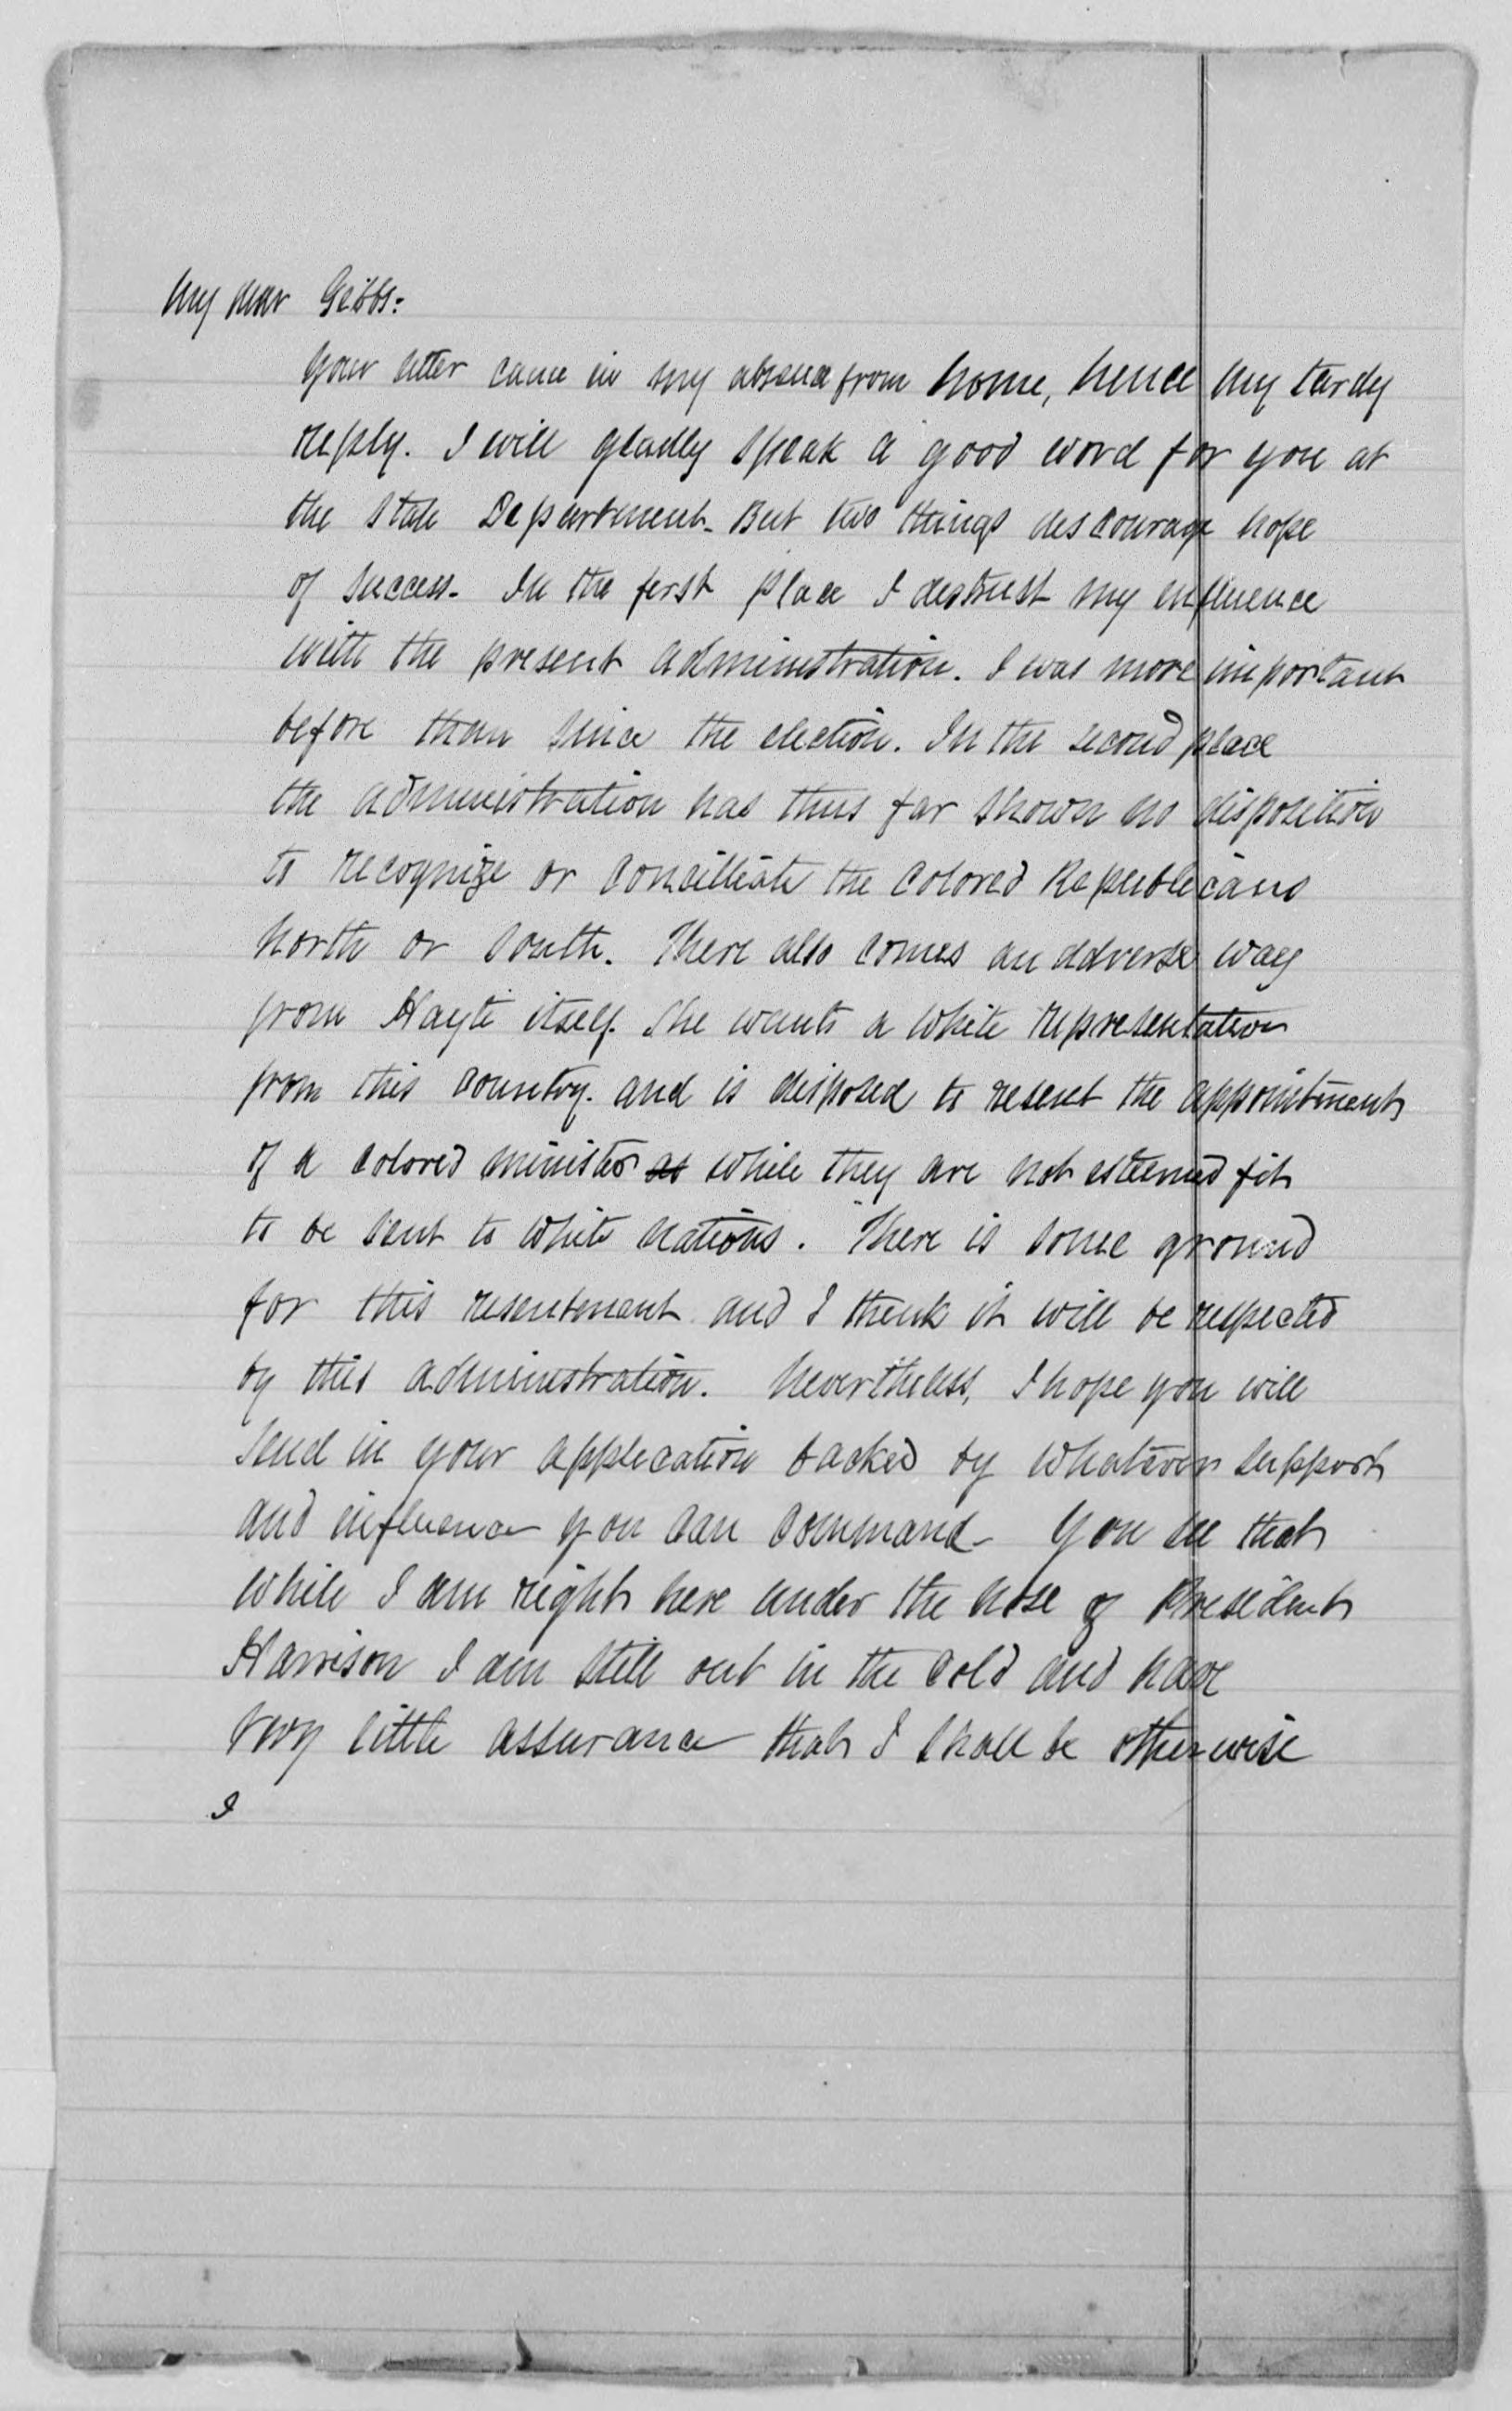 My dear Gibbs:
Your letter came in my absence from home, hence my tardy
reply. I will gladly speak a good word for you at
the State Department. But two things discourage hope
of success. In the first place I distrust my influence
with the present administration. I was more important
before than since the election. In the second place
the administration has thus far shown no disposition
to recognize or concilliate the colored Republicans
North or South. There also comes an adverse way
from Hayti itself. She wants a white representation
from this country. and is disposed to resent the appointment
of a colored minister as while they are not esteemed fit
to be sent to white nations. There is some ground
for this resentment and I think it will be respected
by this administration. Nevertheless, I hope you will
send in your application backed by whatever support
and influence you can command. You see that
while I am right here under the nose of President
Harrison I am still out in the cold and have
very little assurance that I shall be otherwise
I